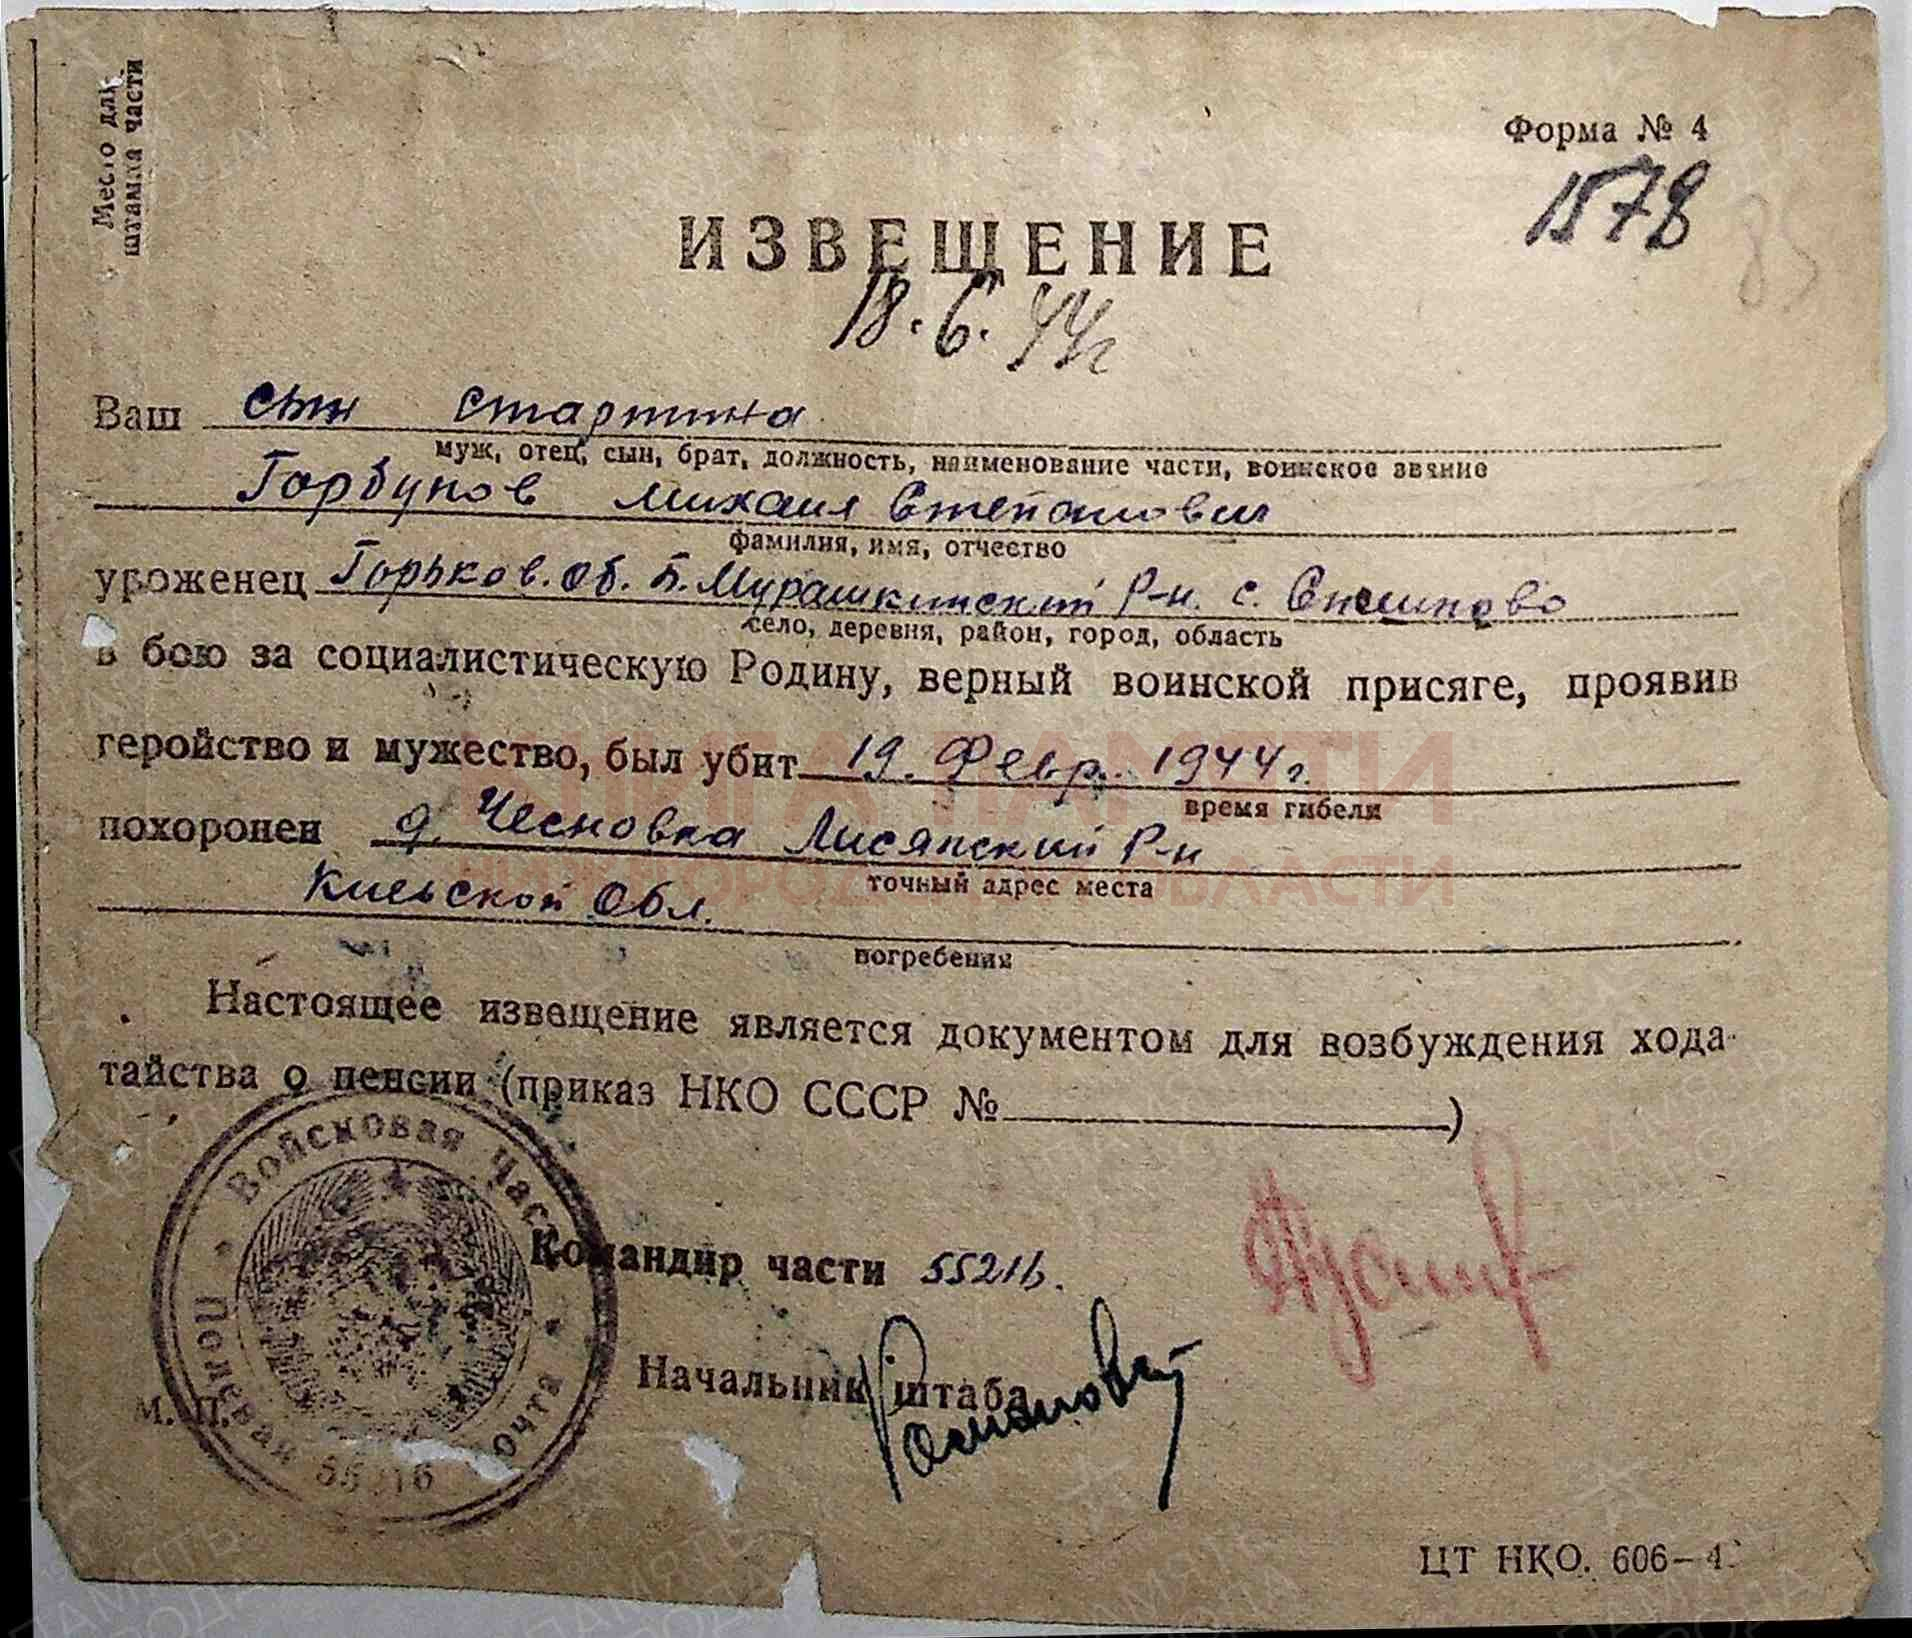 Место для
штампа части
Форма № 4
1578
85
ИЗВЕЩЕНИЕ
18.6.44г
Ваш сын старшина
муж, отец, сын, брат, должность, наименование части, воинское звание
Горбунов Михаил Степанович
фамилия, имя, отчество
уроженец Горьков. Об. Б. Мурашкинский Р-н. с.
село, деревня, район, город, область
в бою за социалистическую Родину, верный воинской присяге, проявив
геройство и мужество, был убит 19. Февр. 1944 г.
время гибели
похоронен д. Чесновка Лисянский Р-н
точный адрес места
Киевской Обл.
погребения
КНИГА ПАМЯТИ
НИЖЕГОРОДСКОЙ ОБЛАСТИ
Настоящее извещение является документом для возбуждения хода-
тайства о пенсии (приказ НКО СССР № )
Войсковая Часть
Полевая Почта
55216
Командир части 55216.
Начальник штаба
М. П.
ЦТ НКО. 606-4